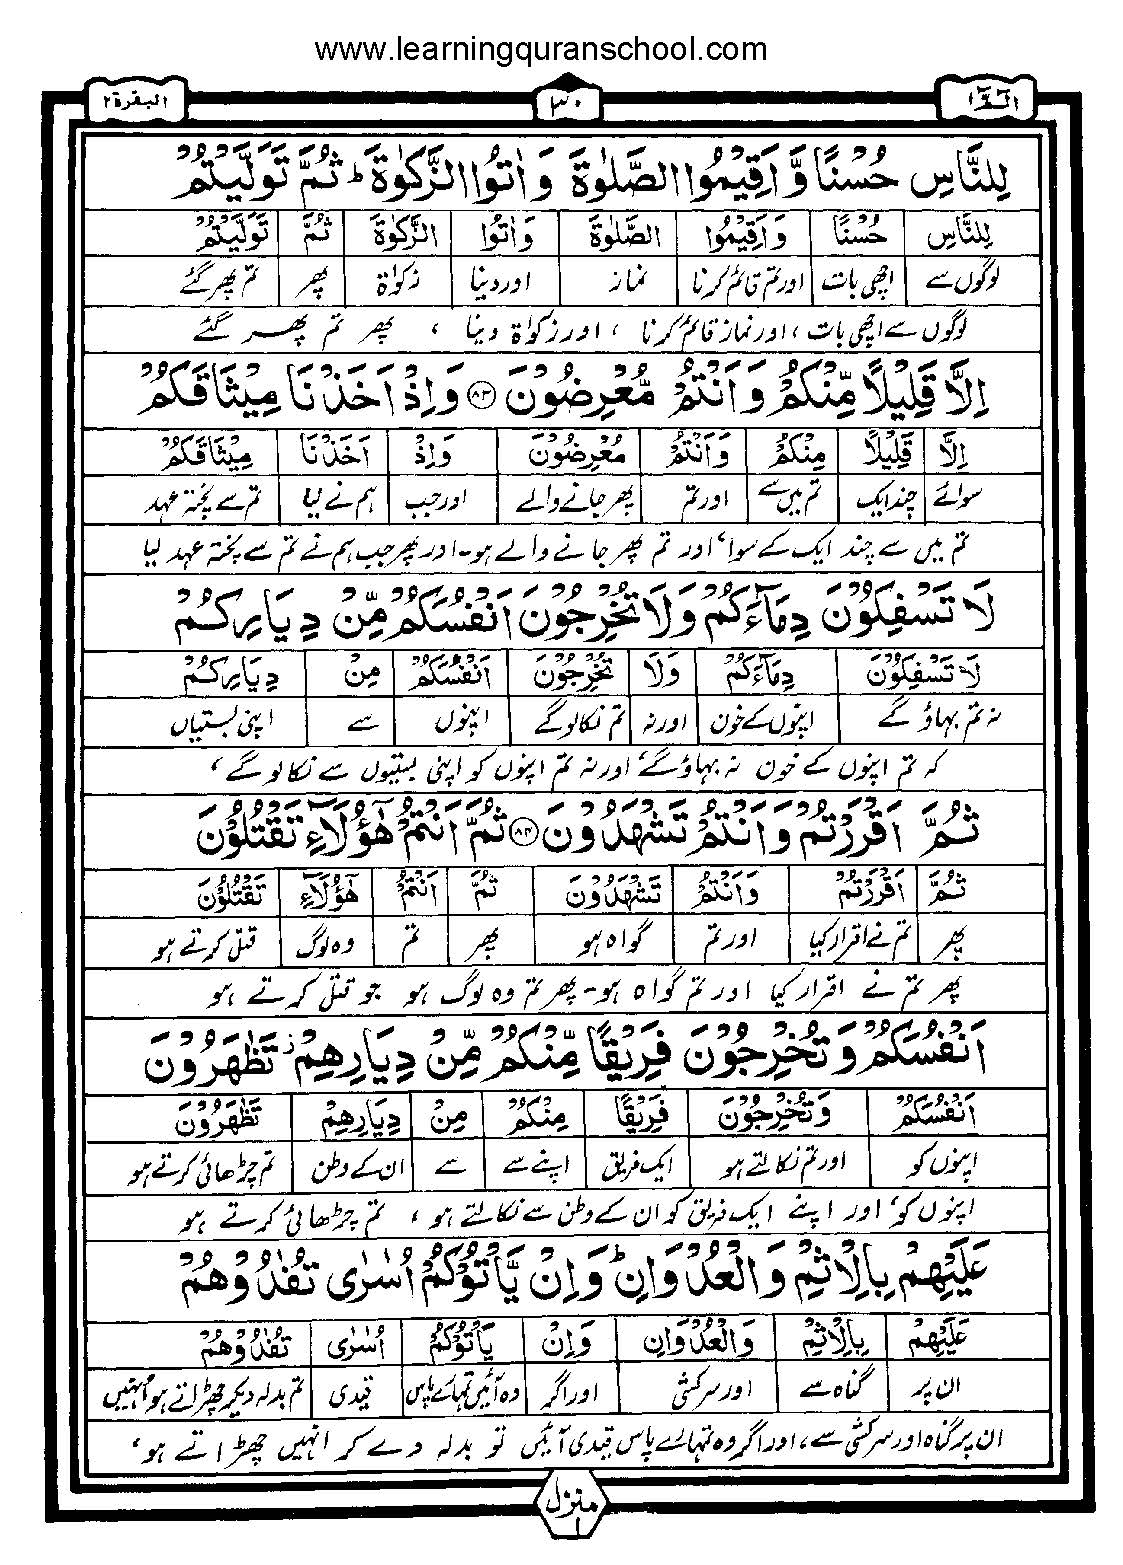 www.learningquranschool.com
البقرة ٢
٣٠
الٓمّٓ ١
لِلنَّاسِ حُسْنًا وَّ اَقِيْمُوا الصَّلٰوةَ وَ اٰتُوا الزَّكٰوةَ ؕ ثُمَّ تَوَلَّيْتُمْ
لِلنَّاسِ حُسْنًا وَ اَقِيْمُوا الصَّلٰوةَ وَ اٰتُوا الزَّكٰوةَ ثُمَّ تَوَلَّيْتُمْ
لوگوں سے اچھی بات اور تم قائم کرنا نماز اور دینا زکوٰۃ پھر تم پھر گئے
لوگوں سے اچھی بات ، اور نماز قائم کرنا ، اور زکوٰۃ دینا ، پھر تم پھر گئے
اِلَّا قَلِيْلًا مِّنْكُمْ وَ اَنْتُمْ مُّعْرِضُوْنَ ﴿٨٣﴾ وَ اِذْ اَخَذْنَا مِيْثَاقَكُمْ
اِلَّا قَلِيْلًا مِنْكُمْ وَ اَنْتُمْ مُعْرِضُوْنَ وَ اِذْ اَخَذْنَا مِيْثَاقَكُمْ
سوائے چند ایک تم میں سے اور تم پھر جانے والے اور جب ہم نے لیا تم سے پختہ عہد
تم میں سے چند ایک کے سوا، اور تم پھر جانے والے ہو۔ اور پھر جب ہم نے تم سے پختہ عہد لیا
لَا تَسْفِكُوْنَ دِمَآءَكُمْ وَ لَا تُخْرِجُوْنَ اَنْفُسَكُمْ مِّنْ دِيَارِكُمْ
لَا تَسْفِكُوْنَ دِمَآءَكُمْ وَلَا تُخْرِجُوْنَ اَنْفُسَكُمْ مِنْ دِيَارِكُمْ
نہ تم بہاؤ گے اپنوں کے خون اور نہ تم نکالو گے اپنوں سے اپنی بستیاں
کہ تم اپنوں کے خون نہ بہاؤ گے اور نہ تم اپنوں کو اپنی بستیوں سے نکالو گے ،
ثُمَّ اَقْرَرْتُمْ وَ اَنْتُمْ تَشْهَدُوْنَ ﴿٨٤﴾ ثُمَّ اَنْتُمْ هٰٓؤُلَآءِ تَقْتُلُوْنَ
ثُمَّ اَقْرَرْتُمْ وَ اَنْتُمْ تَشْهَدُوْنَ ثُمَّ اَنْتُمْ هٰٓؤُلَآءِ تَقْتُلُوْنَ
پھر تم نے اقرار کیا اور تم گواہ ہو پھر تم وہ لوگ قتل کرتے ہو
پھر تم نے اقرار کیا اور تم گواہ ہو۔ پھر تم وہ لوگ ہو جو قتل کرتے ہو
اَنْفُسَكُمْ وَ تُخْرِجُوْنَ فَرِيْقًا مِّنْكُمْ مِّنْ دِيَارِهِمْ ؗ تَظٰهَرُوْنَ
اَنْفُسَكُمْ وَ تُخْرِجُوْنَ فَرِيْقًا مِنْكُمْ مِنْ دِيَارِهِمْ تَظٰهَرُوْنَ
اپنوں کو اور تم نکالتے ہو ایک فریق اپنے سے سے ان کے وطن تم چڑھائی کرتے ہو
اپنوں کو، اور اپنے ایک فریق کو ان کے وطن سے نکالتے ہو ، تم چڑھائی کرتے ہو
عَلَيْهِمْ بِالْاِثْمِ وَ الْعُدْوَانِ ؕ وَ اِنْ يَّاْتُوْكُمْ اُسٰرٰى تُفٰدُوْهُمْ
عَلَيْهِمْ بِالْاِثْمِ وَ الْعُدْوَانِ وَ اِنْ يَاْتُوْكُمْ اُسٰرٰى تُفٰدُوْهُمْ
ان پر گناہ سے اور سرکشی اور اگر وہ آئیں تمہارے پاس قیدی تم بدلہ دیکر چھڑاتے ہو انہیں
ان پر گناہ اور سرکشی سے ، اور اگر وہ تمہارے پاس قیدی آئیں تو بدلہ دے کر انہیں چھڑاتے ہو ،
منزل ١